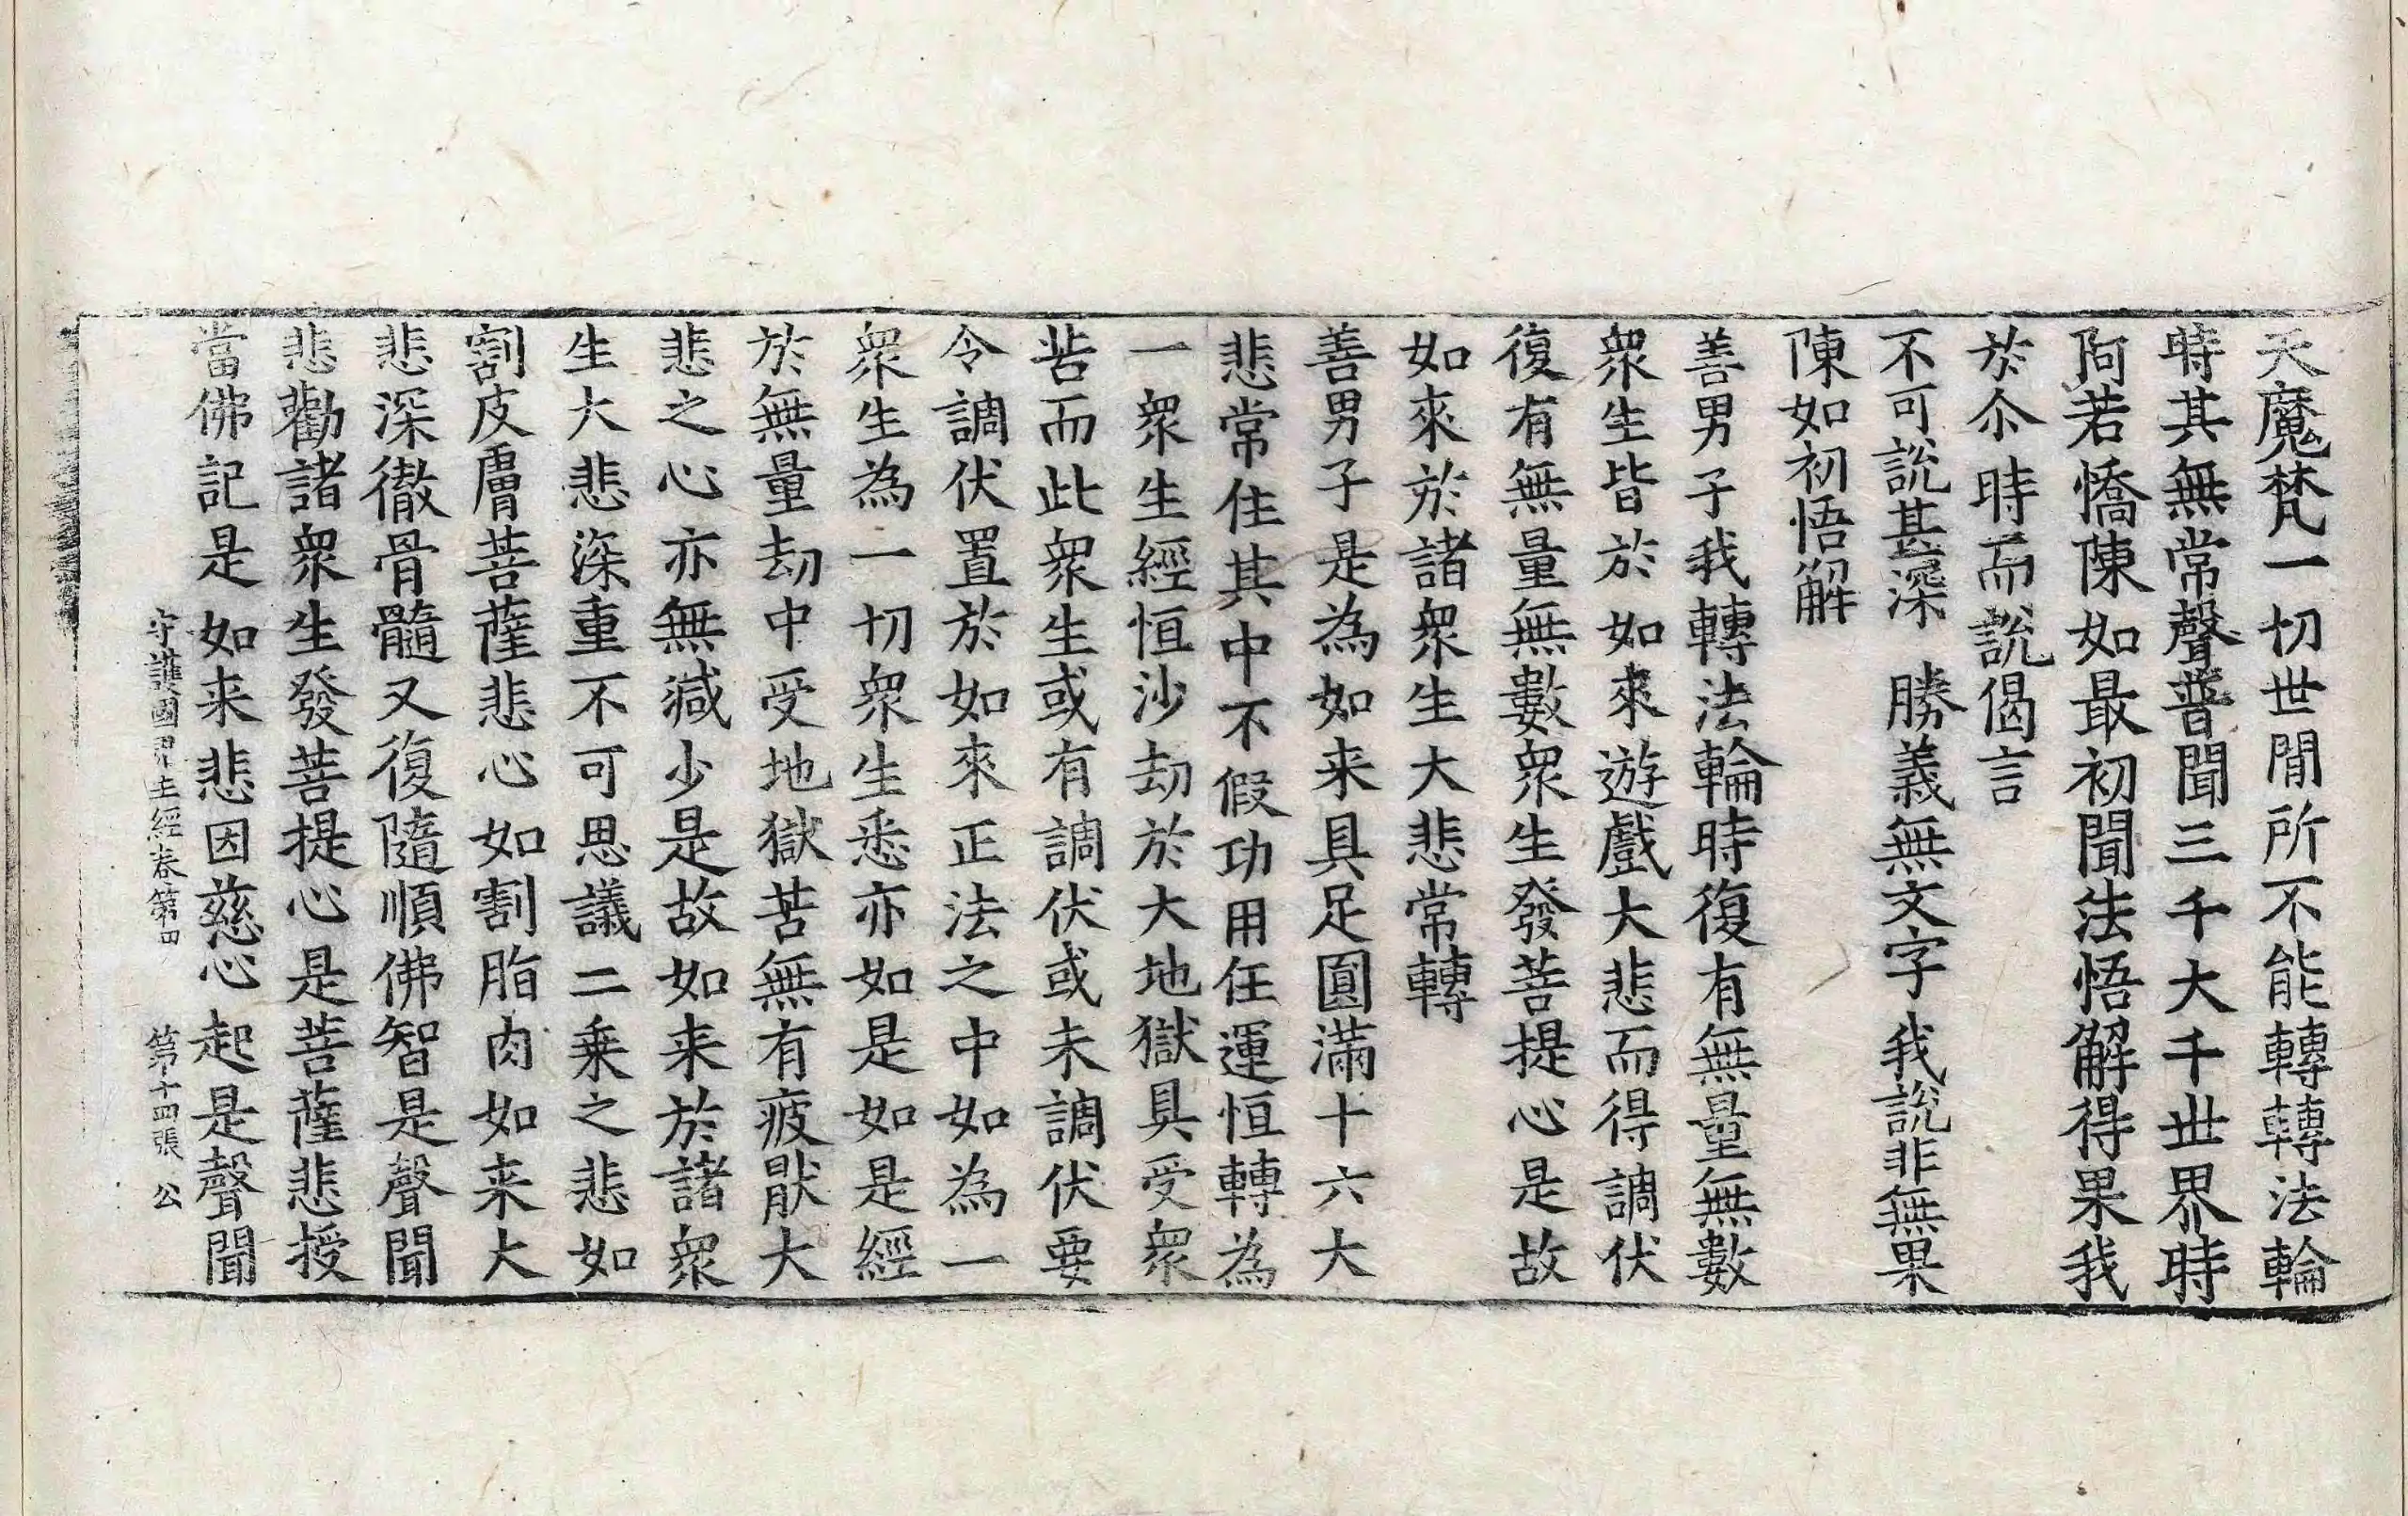 天魔梵一切世閒所不能轉轉法輪
時其無常聲普聞三千大千世界時
阿若憍陳如最初聞法悟解得果我
於尒時而說偈言
不可說甚深　勝義無文字　我說非無果
陳如初悟解
善男子我轉法輪時復有無量無數
衆生皆於如來遊戲大悲而得調伏
復有無量無數衆生發菩提心是故
如來於諸衆生大悲常轉
善男子是為如来具足圓滿十六大
悲常住其中不假功用任運恒轉為
一衆生經恒沙劫於大地獄具受衆
苦而此衆生或有調伏或未調伏要
令調伏置於如來正法之中如為一
衆生為一切衆生悉亦如是如是經
於無量劫中受地獄苦無有疲猒大
悲之心亦無減少是故如来於諸衆
生大悲深重不可思議二乗之悲如
割皮膚菩薩悲心如割脂肉如来大
悲深徹骨髓又復隨順佛智是聲聞
悲勸諸衆生發菩提心是菩薩悲授
當佛記是如来悲因慈心起是聲聞
守護國界主經卷第四　第十四張　公